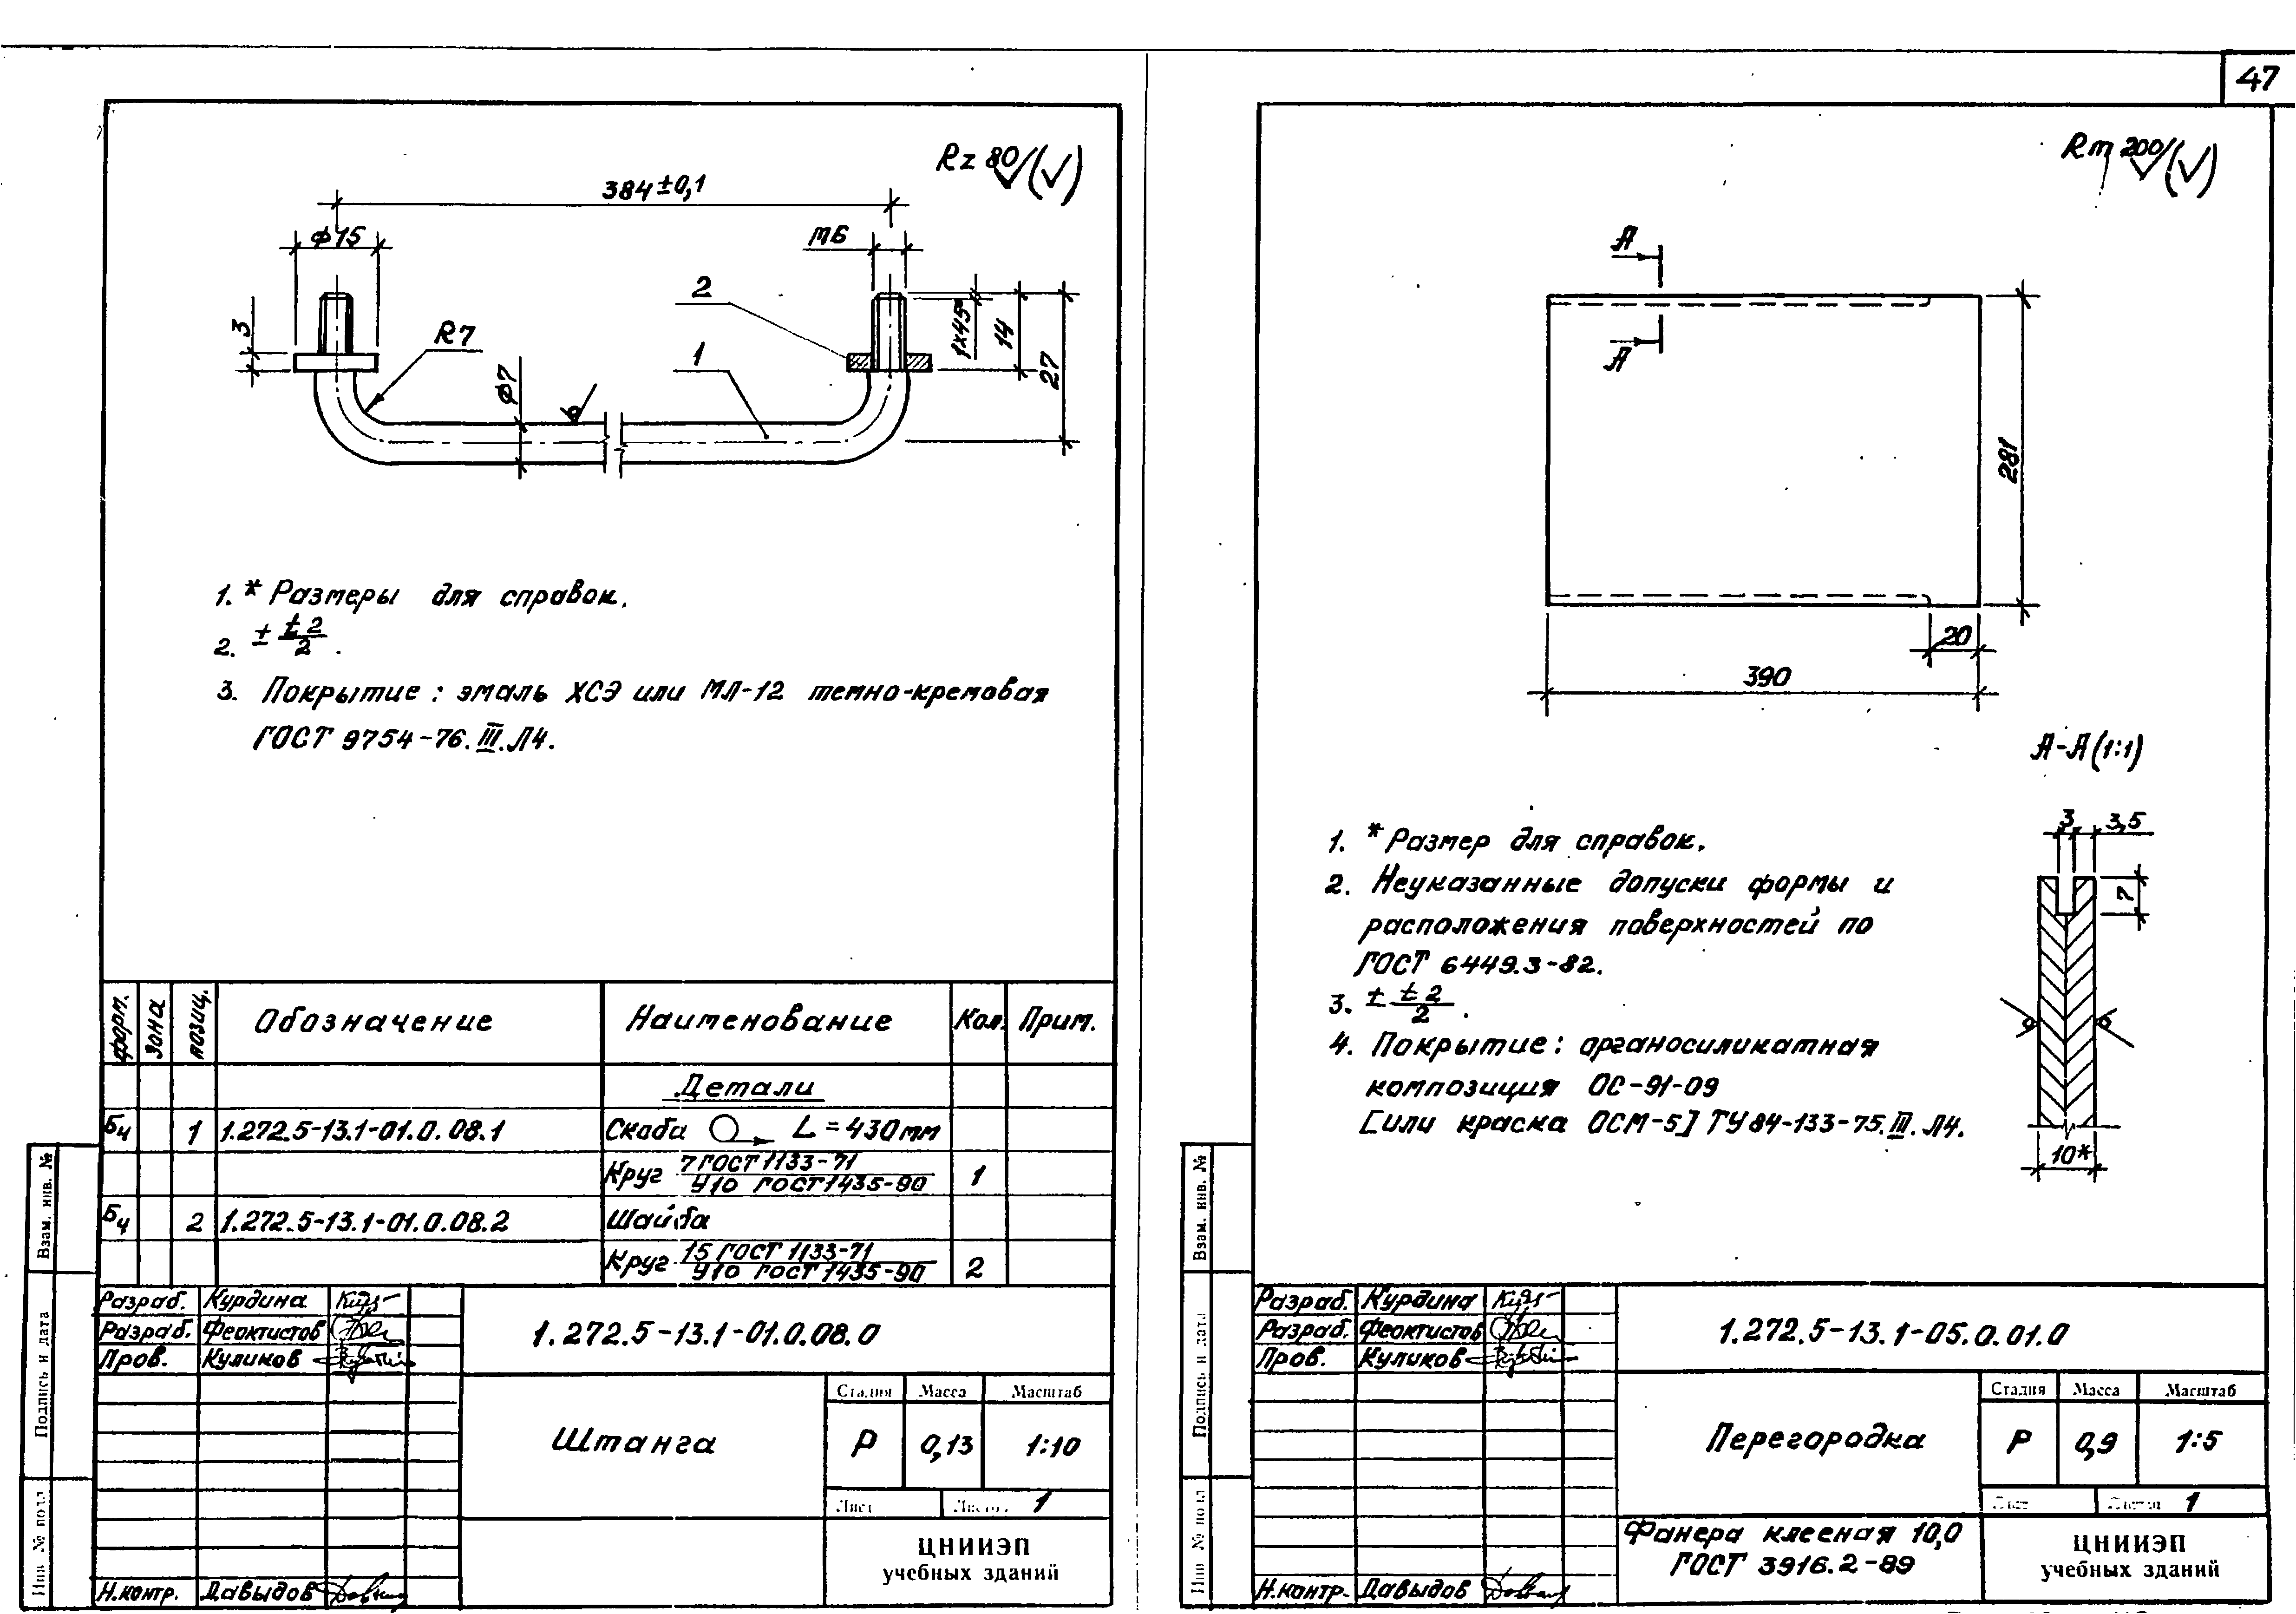 47
Rz 80 (√)
384±0,1
ϕ15
М6
3
R7
ϕ7
2
1
1×45°
14
27
1. * Размеры для справок.
2. ± t2/2 .
3. Покрытие: эмаль ХСЭ или МЛ-12 темно-кремовая
ГОСТ 9754-76.III.Л4.
форм. зона позиц. Обозначение Наименование Кол. Прим.
Детали
Бч 1 1.272.5-13.1-01.0.08.1 Скоба L=430мм
Круг 7 ГОСТ 1133-71 / У10 ГОСТ 1435-90 1
Бч 2 1.272.5-13.1-01.0.08.2 Шайба
Круг 15 ГОСТ 1133-71 / У10 ГОСТ 1435-90 2
Взам. инв. №
Подпись и дата
Инв № подл
Разраб. Курдина
Разраб. Феоктистов
Пров. Куликов
Н.контр. Давыдов
1.272.5-13.1-01.0.08.0
Штанга
Стадия Масса Масштаб
Р 0,13 1:10
Лист Листов 1
ЦНИИЭП
учебных зданий
Rm 200 (√)
А
А
281
20
390
А-А (1:1)
3 3,5
7
10*
1. * Размер для справок.
2. Неуказанные допуски формы и
расположения поверхностей по
ГОСТ 6449.3-82.
3. ± t2/2 .
4. Покрытие: органосиликатная
композиция ОС-91-09
[или краска ОСМ-5] ТУ84-133-75.III.Л4.
Взам. инв. №
Подпись и дата
Инв № подл
Разраб. Курдина
Разраб. Феоктистов
Пров. Куликов
Н.контр. Давыдов
1.272.5-13.1-05.0.01.0
Перегородка
Стадия Масса Масштаб
Р 0,9 1:5
Лист Листов 1
Фанера клееная 10,0
ГОСТ 3916.2-89
ЦНИИЭП
учебных зданий